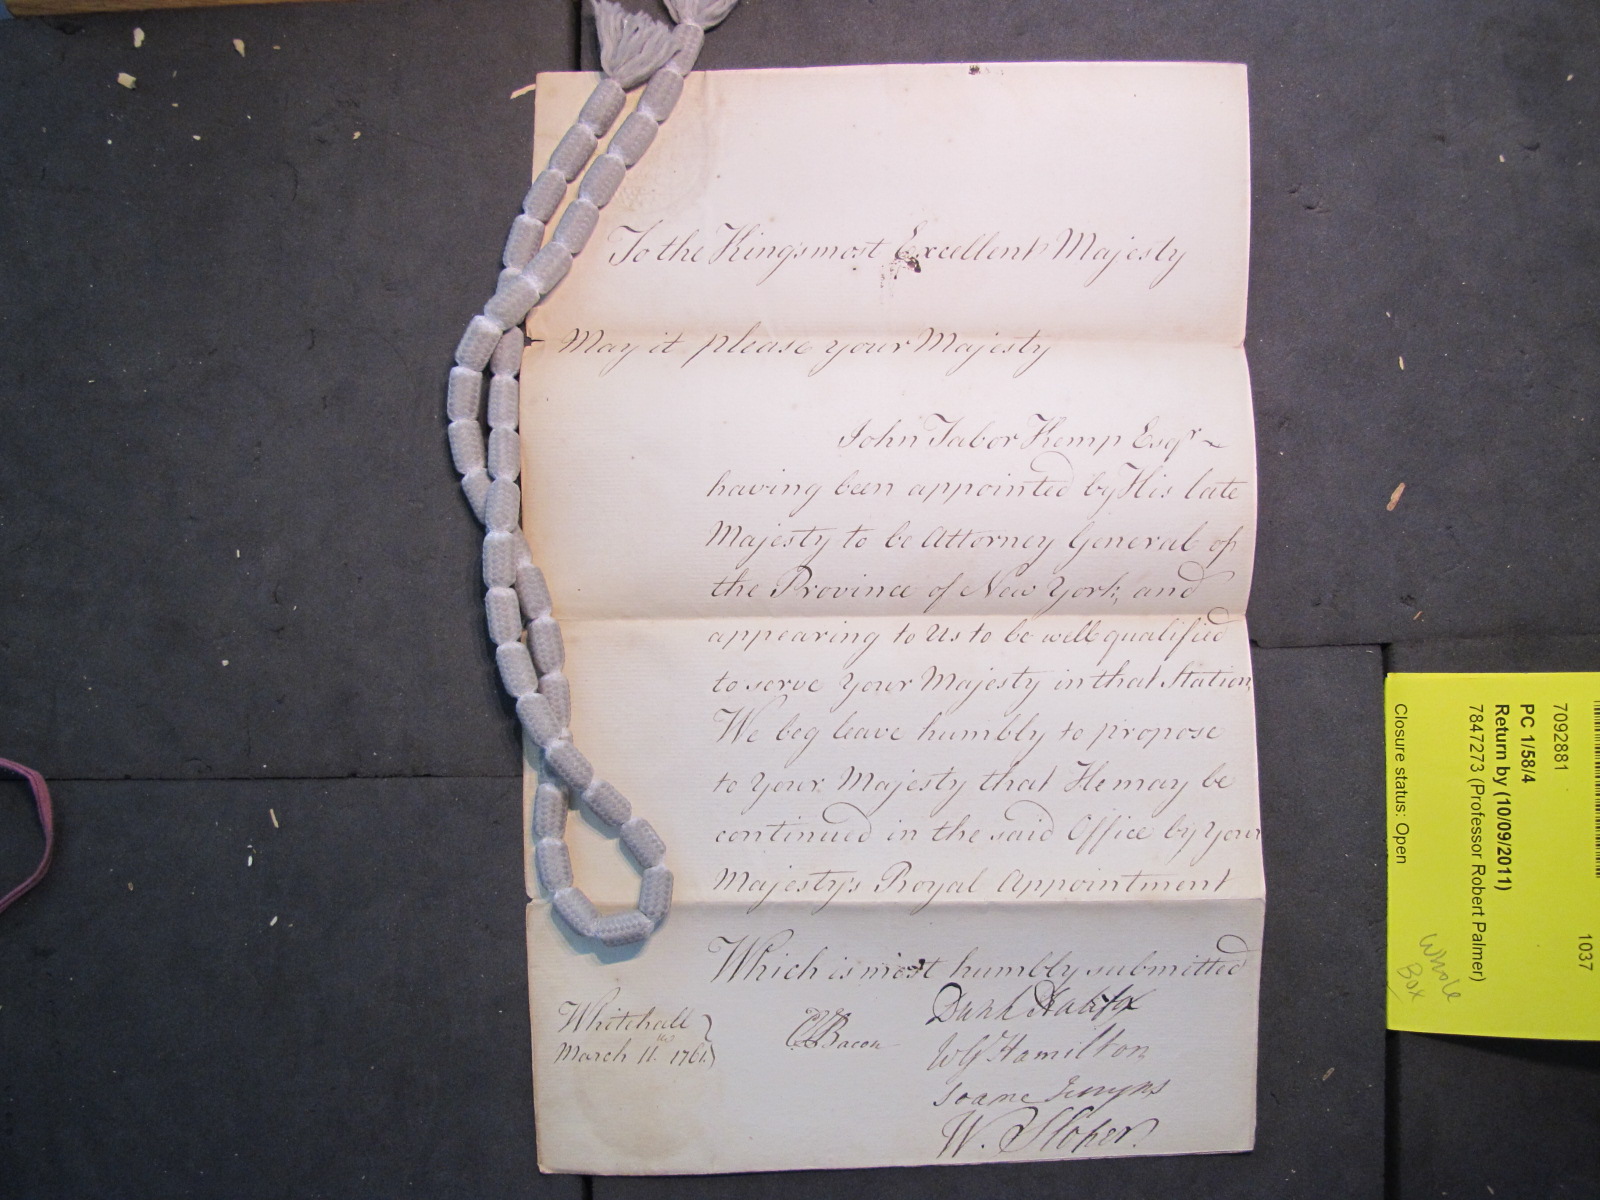 To the Kings most Excellent Majesty
May it please your Majesty
John Tabor Kemp Esqr
having been appointed by His late
Majesty to be Attorney General of
the Province of New York, and
appearing to Us to be well qualified
to serve Your Majesty in that Station,
We beg leave humbly to propose
to Your Majesty that He may be
continued in the said Office by Your
Majesty's Royal Appointment
Which is most humbly submitted
Whitehall
March 11th 1761.
Bacon
Dunk Halifax
WG Hamilton
Soame Jenyns
W. Sloper.
1037
7092881
PC 1/58/4
Return by (10/09/2011)
7847273 (Professor Robert Palmer)
Closure status: Open
Whole
Box